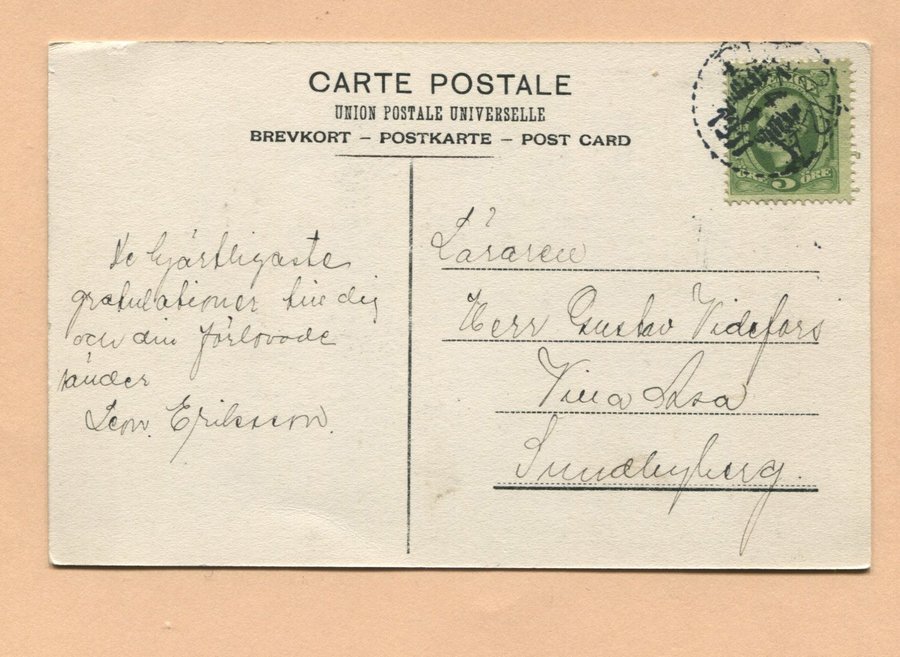 CARTE POSTALE
UNION POSTALE UNIVERSELLE
BREVKORT – POSTKARTE – POST CARD
5 ÖRE
De hjärtligaste
gratulationer till dig
och din förlovade
sänder
Leon. Eriksson.
Läraren
Herr Gustav Videfors
Villa Rosa
Sundbyberg.